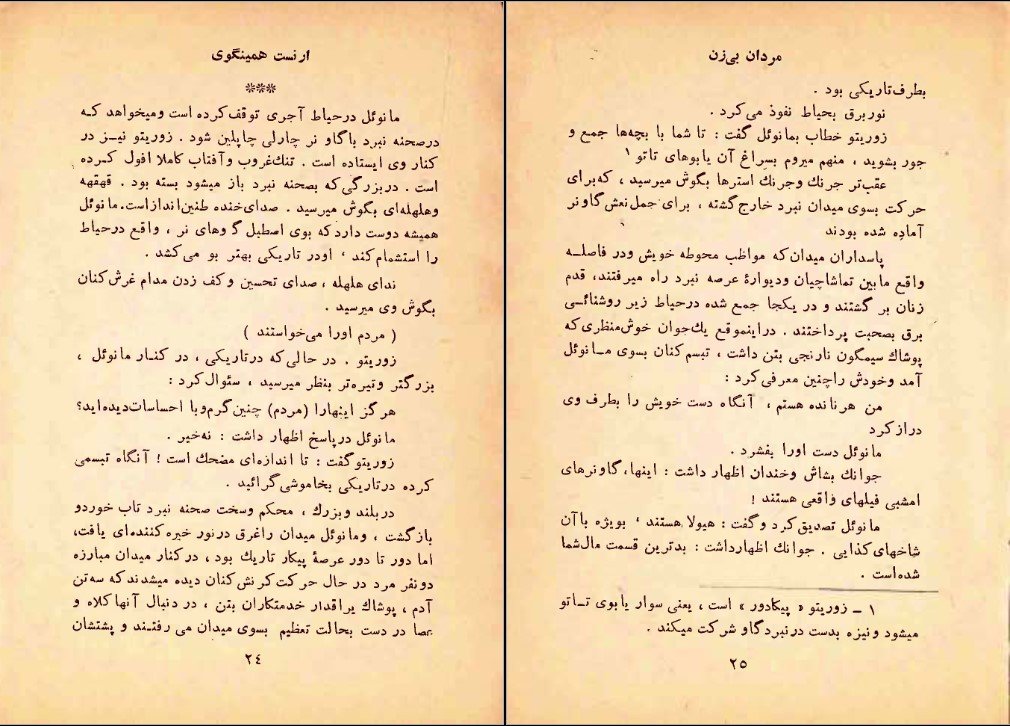 ارنست همینگوی
***
مانوئل درحیاط آجری توقف‌کرده است ومیخواهد کـه
درصحنه نبرد باگاو نر چارلی چاپلین شود . زوریتو نیـز در
کنار وی ایستاده است . تنك‌غروب وآفتاب کاملا افول کـرده
است . دربزرگی‌که بصحنه نبرد باز میشود بسته بود . قهقهه
وهلهله‌ای بگوش میرسید . صدای‌خنده طنین‌اندازاست. مانوئل
همیشه دوست داردکه بوی اسطبل گاوهای نر ، واقع درحیاط
را استشمام‌کند ، اودر تاریکی بهتر بو می‌کشد .
ندای هلهله ، صدای تحسین وکف زدن مدام غرش‌کنان
بگوش وی میرسید .
( مردم اورا می‌خواستند )
زوریتو . در حالی‌که درتاریکی ، در کنـار مانوئل ،
بزرگتر وتیره‌تر بنظر میرسید ، سئوال‌کرد :
هرگز اینهارا (مردم) چنین‌گرم‌وبا احساسات‌دیده‌اید؟
مانوئل درپاسخ اظهار داشت : نه‌خیر .
زوریتوگفت : تا اندازه‌ای مضحك است ! آنگاه تبسمی
کرده درتاریکی بخاموشی‌گرائید .
دربلند وبزرك ، محکم وسخت صحنه نبرد تاب خوردو
بازگشت ، ومانوئل میدان راغرق درنور خیره‌کننده‌ای یافت،
اما دور تا دور عرصهٔ پیکار تاریك بود ، درکنار میدان مبارزه
دونفر مرد در حال حرکت‌کرنش‌کنان دیده میشدندکه سه‌تن
آدم ، پوشاك یراقدار خدمتکاران بتن ، در دنبال آنهاکلاه و
عصا در دست بحالت تعظیم بسوی میدان می رفتـند و پشتشان
۲٤
مردان بی‌زن
بطرف‌تاریکی بود .
نوربرق بحیاط نفوذ می‌کرد .
زوریتو خطاب بمانوئل گفت : تا شما با بچه‌ها جمع و
جور بشوید ، منهم میروم بسراغ آن یابوهای تاتو ۱
عقب‌تر جرنك وجرنك استرها بگوش میرسید ، که‌برای
حرکت بسوی میدان نبرد خارج‌گشته ، برای حمل‌نعش‌گاونر
آماده شده بودند
پاسداران میدان‌که مواظب محوطه خویش ودر فاصلـه
واقع مابین تماشاچیان ودیوارهٔ عرصه نبرد راه میرفتند، قدم
زنان برگشتند و در یکجا جمع شده درحیاط زیر روشنائـی
برق بصحبت پرداختند . دراینموقع یك‌جوان خوش‌منظری‌که
پوشاك سیمگون نارنجی بتن داشت ، تبسم‌کنان بسوی مـانوئل
آمد وخودش راچنین معرفی‌کرد :
من هرنانده هستم ، آنگاه دست خویش را بطرف وی
درازکرد
مانوئل دست اورا بفشرد .
جوانك بشاش وخندان اظهار داشت : اینها،گاونرهای
امشبی فیلهای واقعی هستند !
مانوئل تصدیق‌کرد وگفت : هیولا هستند ، بویژه باآن
شاخهای‌کذایی . جوانك اظهارداشت : بدترین قسمت مال‌شما
شده‌است .
۱ ـ زوریتو « پیکادور » است ، یعنی سوار یابوی تـاتو
میشود ونیزه بدست درنبردگاو شرکت میکند .
۲۵